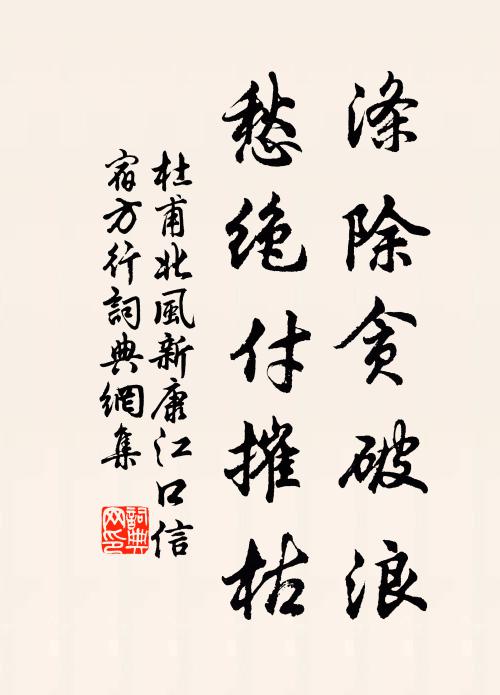 涤除贪破浪
愁绝付摧枯
杜甫北風新康江口信
宿方行詞典網集
詞典网印